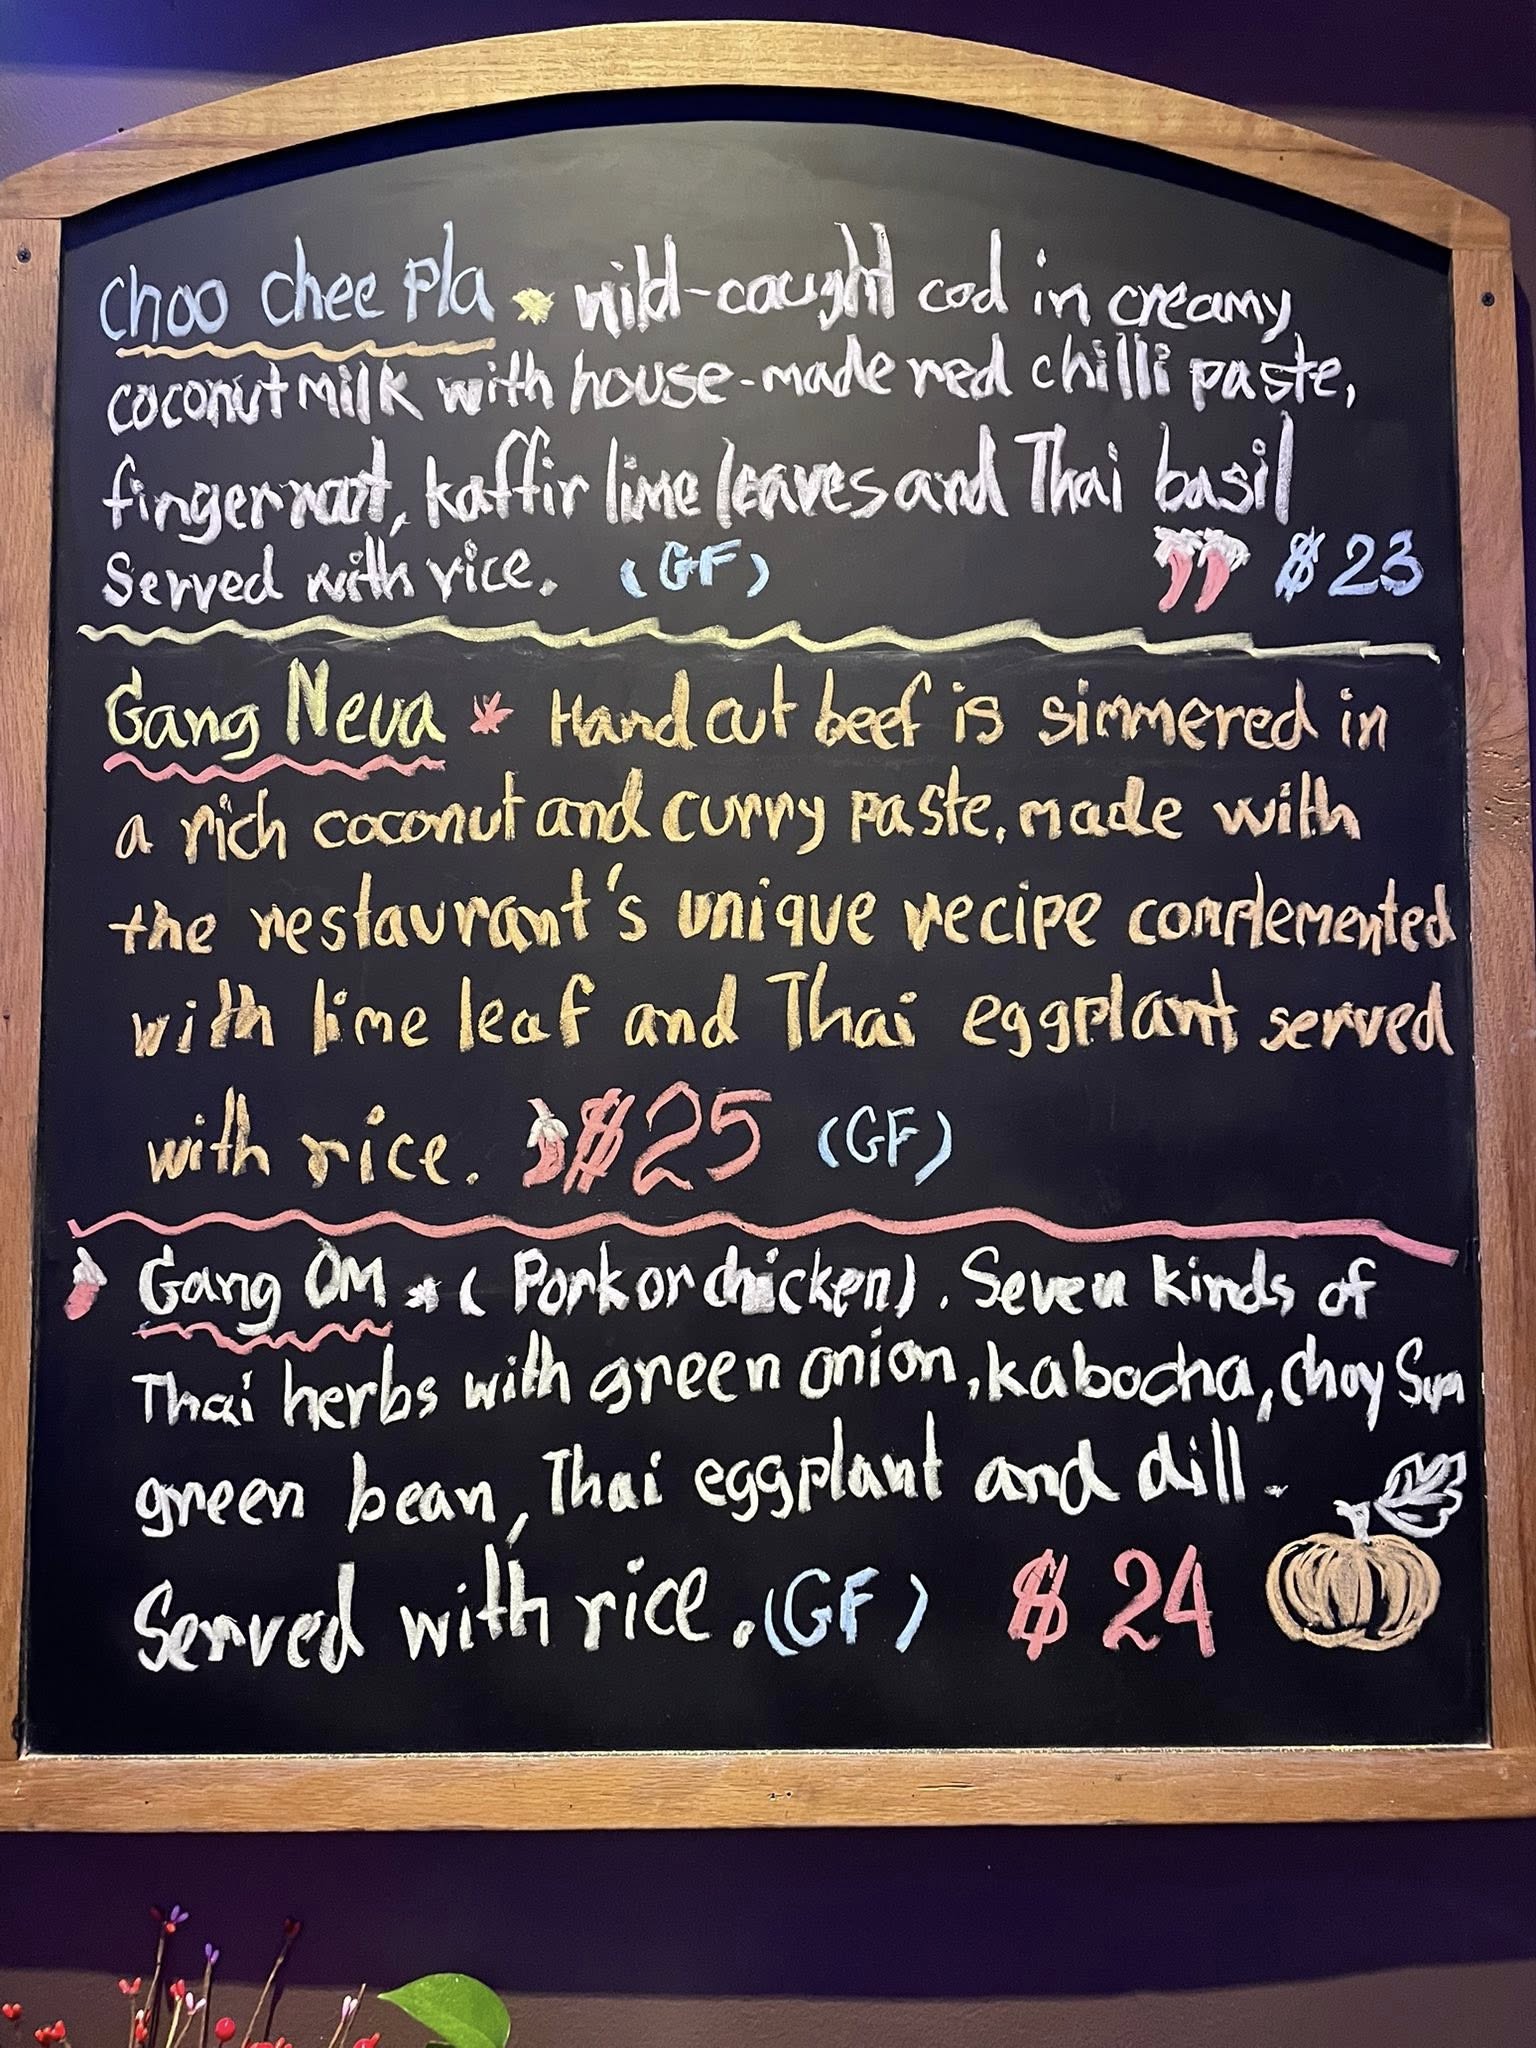 Choo chee Pla wild-caught cod in creamy
coconut milk with house-made red chilli paste,
fingerroot, kaffir lime leaves and Thai basil
Served with rice. (GF) $23
Gang Neua Hand cut beef is simmered in
a rich coconut and curry paste, made with
the restaurant's unique recipe complemented
with lime leaf and Thai eggplant served
with rice. $25 (GF)
Gang Om (Pork or chicken). Seven kinds of
Thai herbs with green onion, kabocha, choy Sum
green bean, Thai eggplant and dill.
Served with rice. (GF) $24